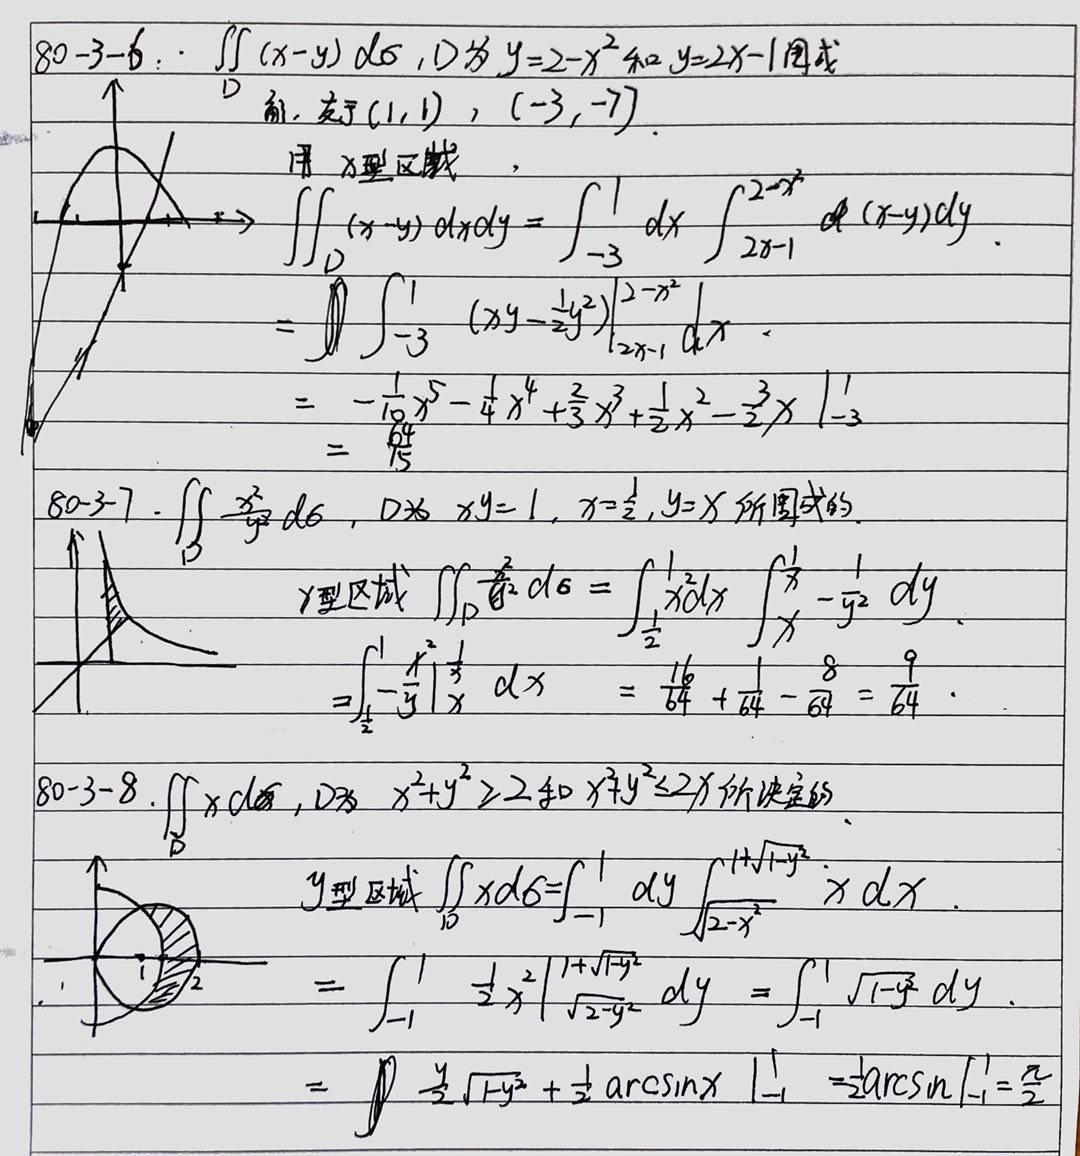 80-3-6: ∬_D (x-y) dσ, D为 y=2-x² 和 y=2x-1围成
解. 交于(1,1), (-3,-7).
用 X型区域.
∬_D (x-y) dxdy = ∫_{-3}^{1} dx ∫_{2x-1}^{2-x²} (x-y)dy.
= ∫_{-3}^{1} (xy-\frac{1}{2}y²)|_{2x-1}^{2-x²} dx.
= -\frac{1}{10}x⁵-\frac{1}{4}x⁴+\frac{2}{3}x³+\frac{1}{2}x²-\frac{3}{2}x |_{-3}^{1}
= \frac{64}{15}
80-3-7. ∬_D \frac{x²}{y²} dσ, D为 xy=1, x=\frac{1}{2}, y=x 所围成的.
X型区域 ∬_D \frac{x²}{y²} dσ = ∫_{\frac{1}{2}}^{1} x²dx ∫_{x}^{\frac{1}{x}} -\frac{1}{y²} dy.
=∫_{\frac{1}{2}}^{1} -\frac{x²}{y}|_{x}^{\frac{1}{x}} dx = \frac{16}{64}+\frac{1}{64}-\frac{8}{64}=\frac{9}{64}.
80-3-8. ∬_D x dσ, D为 x²+y²≥2 和 x²+y²≤2x 所决定的.
y型区域 ∬_D xdσ=∫_{-1}^{1} dy ∫_{\sqrt{2-x²}}^{1+\sqrt{1-y²}} x dx.
1 2
= ∫_{-1}^{1} \frac{1}{2}x²|_{\sqrt{2-y²}}^{1+\sqrt{1-y²}} dy = ∫_{-1}^{1} \sqrt{1-y²} dy.
= \frac{y}{2}\sqrt{1-y²}+\frac{1}{2}arcsinx |_{-1}^{1} =\frac{1}{2}arcsin|_{-1}^{1}=\frac{π}{2}